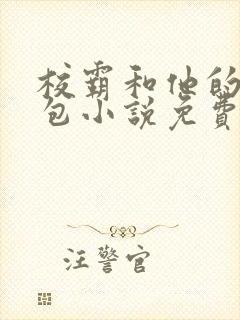 校霸和他的
包小說免費
汪警官